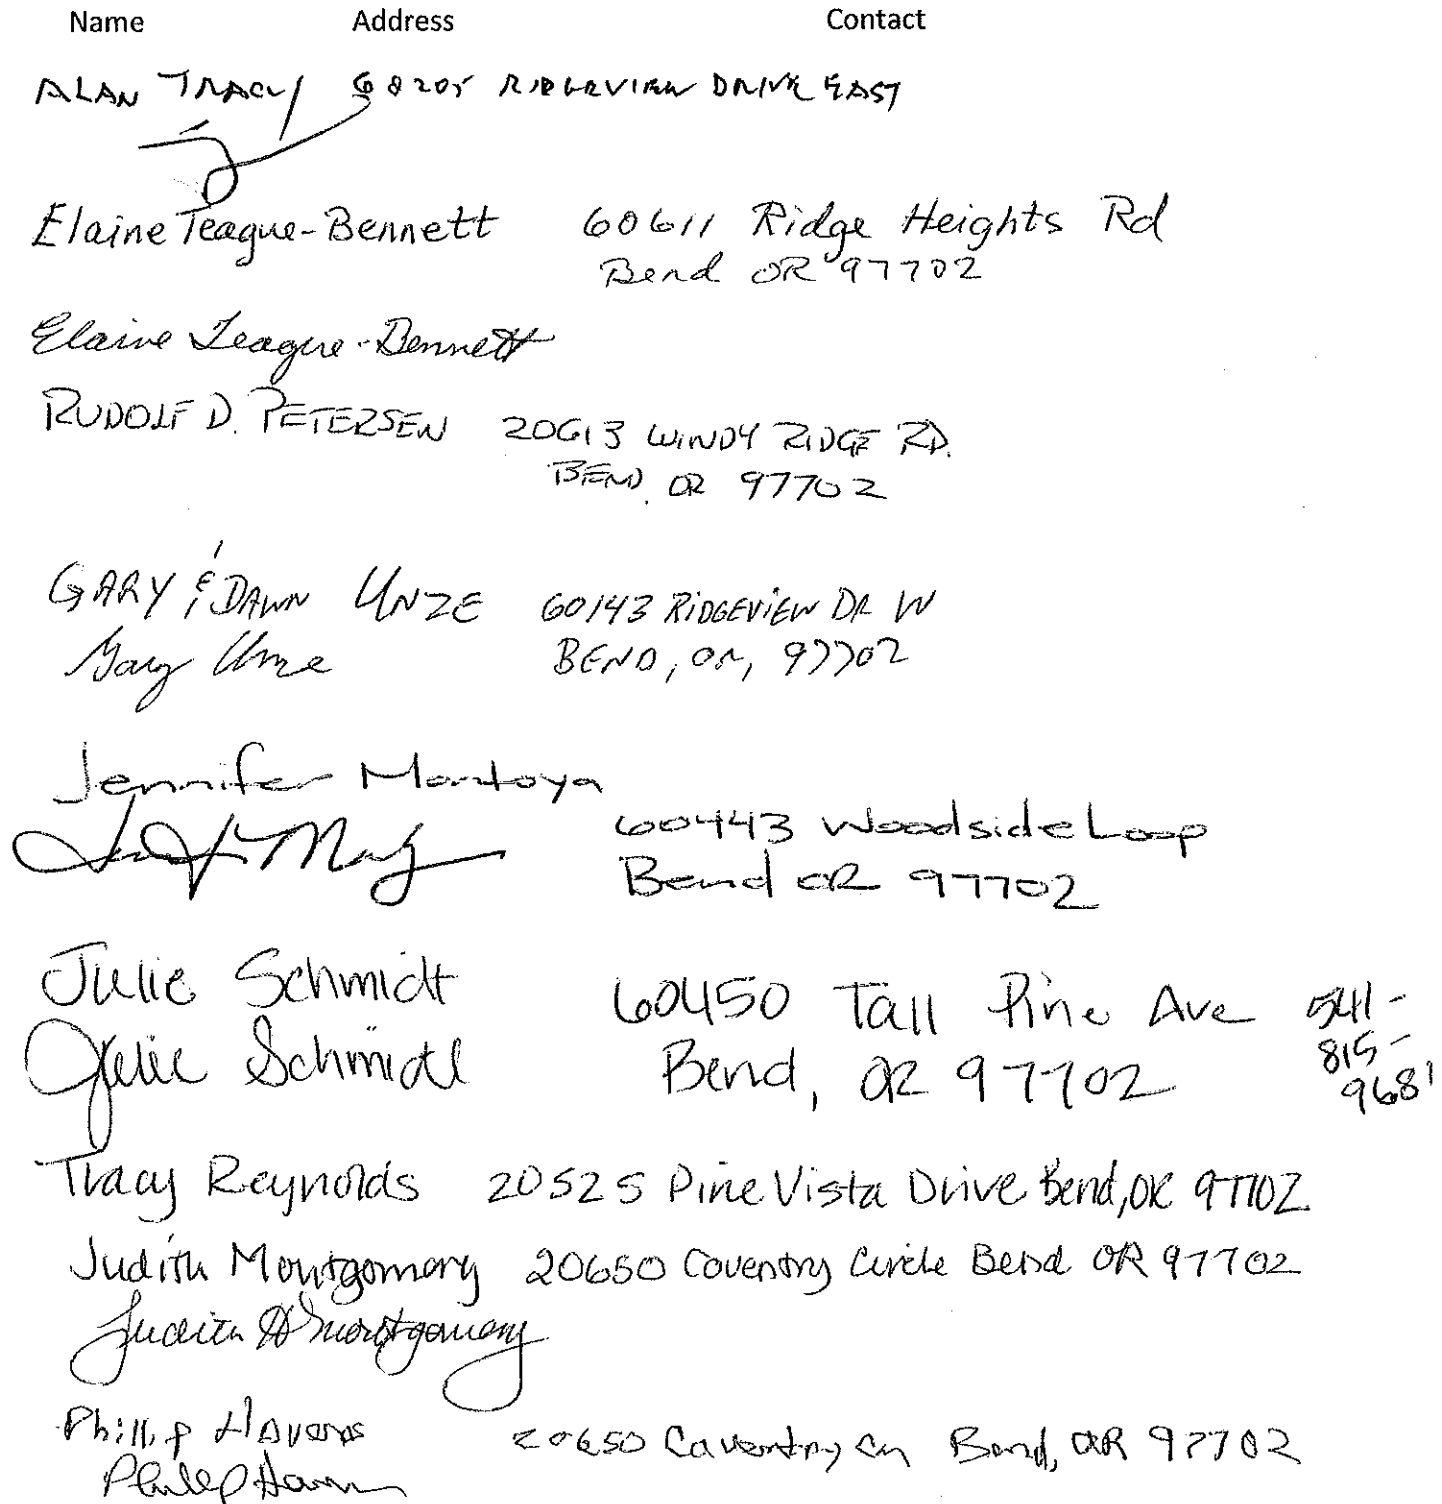 Name Address Contact
ALAN TRACY 60205 RIDGEVIEW DRIVE EAST
Elaine Teague-Bennett 60611 Ridge Heights Rd
Bend OR 97702
Elaine Teague-Bennett
RUDOLF D. PETERSEN 20613 WINDY RIDGE RD.
BEND OR 97702
GARY & DAWN UNZE 60143 RIDGEVIEW DR W
Gary Unze BEND, OR, 97702
Jennifer Montoya
60443 Woodside Loop
Bend OR 97702
Julie Schmidt 60450 Tall Pine Ave 541-
Julie Schmidt Bend, OR 97702 815-
9681
Tracy Reynolds 20525 Pine Vista Drive Bend, OR 97702
Judith Montgomery 20650 Coventry Circle Bend OR 97702
Judith H Montgomery
Phillip Havens 20650 Coventry Cir Bend, OR 97702
Phillip Haven